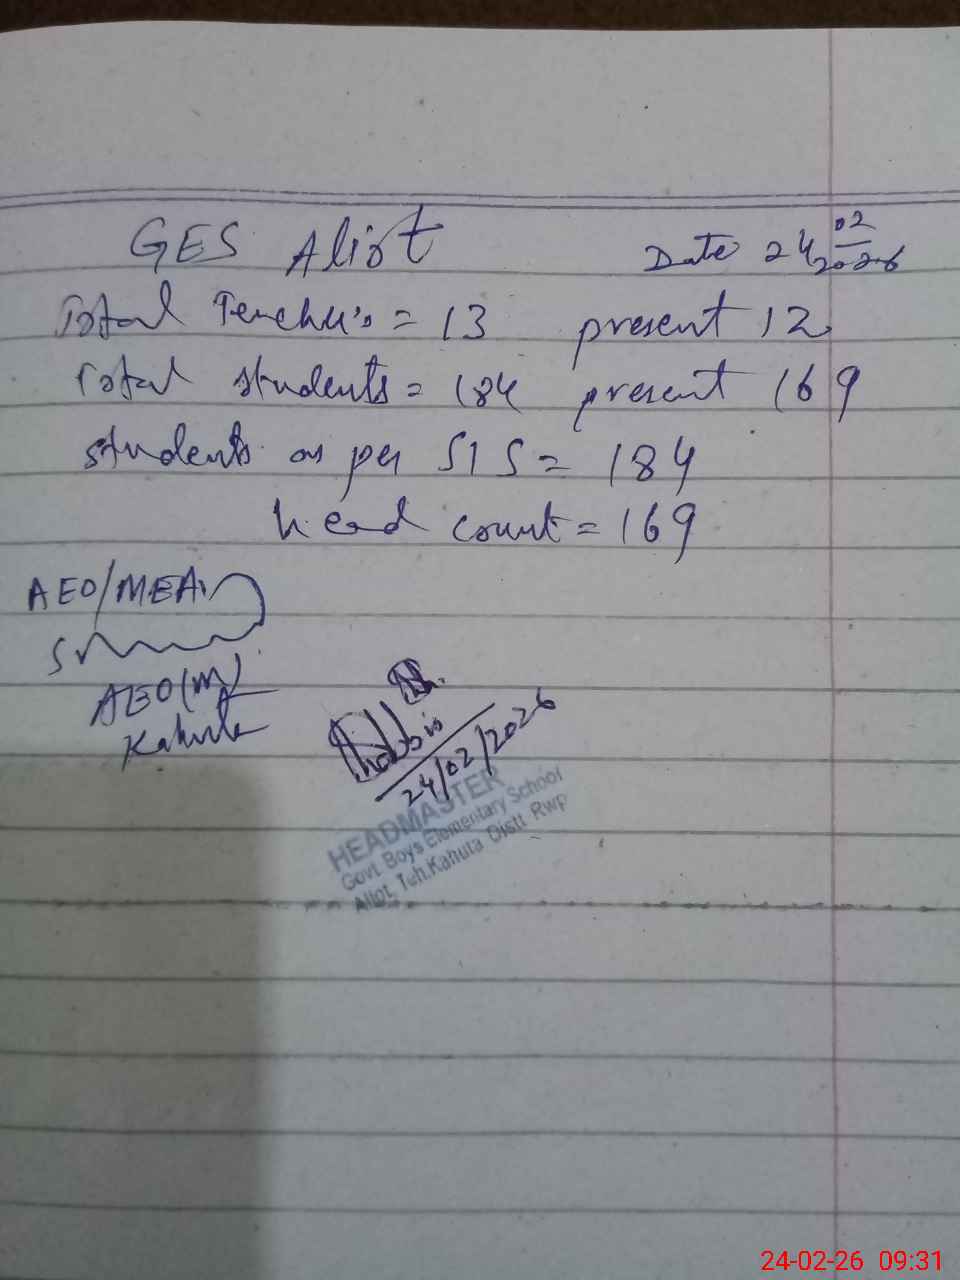 GES Aliot Date 24/02/2026
Total Teacher's = 13 present 12
Total students = 184 present 169
students as per SIS = 184
head count = 169
AEO/MEA
AEO(M)
Kahuta
24/02/2026
HEADMASTER
Govt Boys Elementary School
Aliot Teh.Kahuta Distt Rwp
24-02-26 09:31